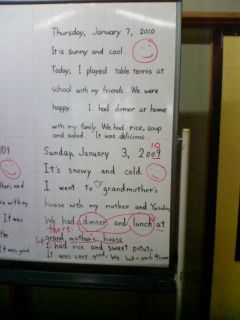 Thursday, January 7, 2010
It is sunny and cool.
Today, I played table tennis at
school with my friends. We were
happy. I had dinner at home
with my family. We had rice, soup
and salad. It was delicious.
10
Sunday, January 3, 2009
It's snowy and cold
I went to grandmother's
house with my mother and
We had dinner and lunch at
there.
grand mother's house
I had rice and sweet potato.
It was very good. We had a good time
009
It was
It was good